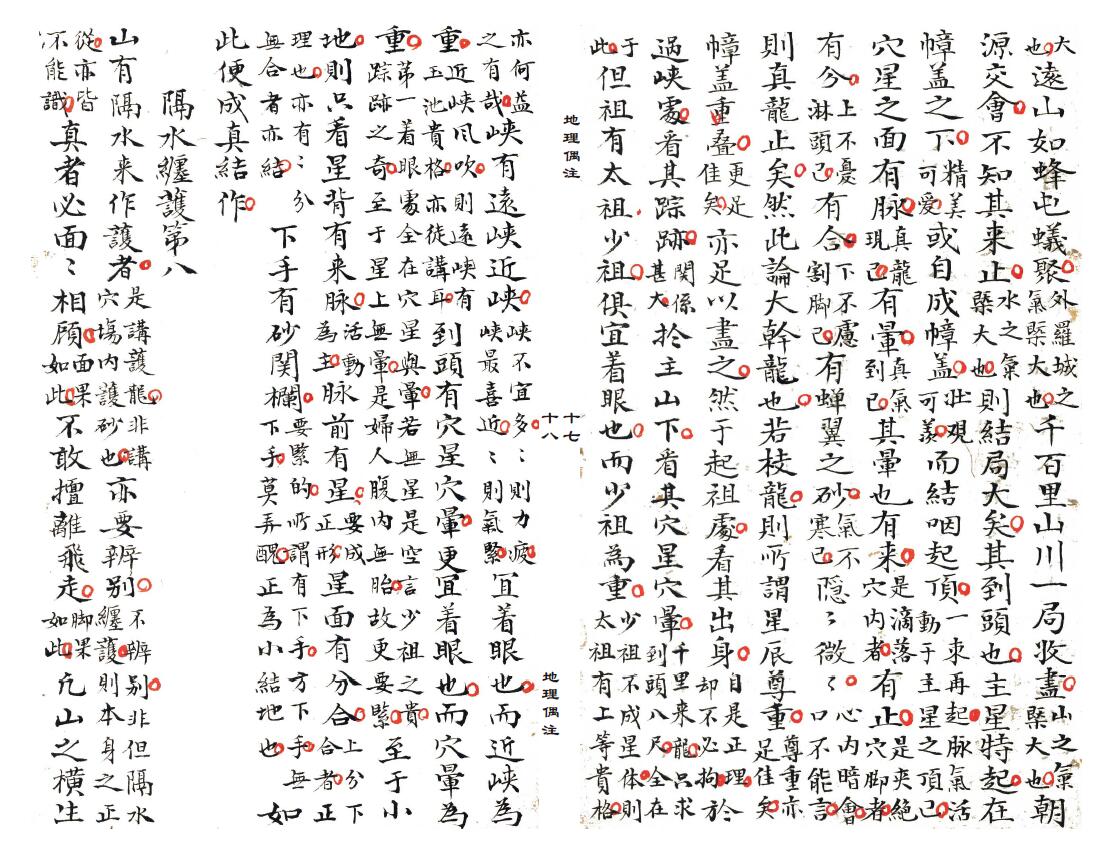 大也遠山如蜂屯蟻聚外羅城之氣槩大也千百里山川一局收盡山之氣槩大也朝
源交會不知其来止水之氣槩大也則結局大矣其到頭也主星特起在
幛盖之下精美可愛或自成幛盖壮观可羨而結咽起頂一束再起脉氣活動于主星之頂已
穴星之面有脉真龍現已有暈真氣到已其暈也有来是滴落穴内者有止是夹絕穴脚者
有分上不憂淋頭已有合下不慮割脚已有蝉翼之砂氣不寒已隐々微々心内暗會口不能言
則真龍止矣然此論大幹龍也若枝龍則所謂星辰尊重尊重亦足佳矣
幛盖重叠更足佳矣亦足以盡之然于起祖處看其出身自是正理今却不必拘於
过峡處看其踪跡関係甚大扵主山下看其穴星穴暈千里来龍只求到頭八尺全在
于此但祖有太祖少祖俱宜着眼也而少祖為重少祖不成星体則太祖有上等貴格
地理偶注
十七
十八
地理偶注
亦何益之有哉峡有遠峡近峡峡不宜多々則力疲峡最喜近々則氣緊宜着眼也而近峡為
重近峡风吹則遠峡有玉池貴格亦徒講耳到頭有穴星穴暈更宜着眼也而穴暈為
重第一着眼處全在穴星與暈若無星是空言少祖之貴踪跡之奇至于星上無暈是婦人腹内無胎故更要緊至于小
地則只看星背有来脉活動為主脉前有星要成正形星面有分合上分下合者正
理也亦有々分無合者亦結下手有砂関欄要緊的所謂有下手方下手無下手莫弄醜正為小結地也如
此便成真結作
隔水纏護第八
山有隔水来作護者是講護龍非講穴塲内護砂也亦要辨别不辨别非但隔水纏護則本身之正
從亦皆不能識真者必面々相顾面果如此不敢擅離飛走脚果如此凡山之横生